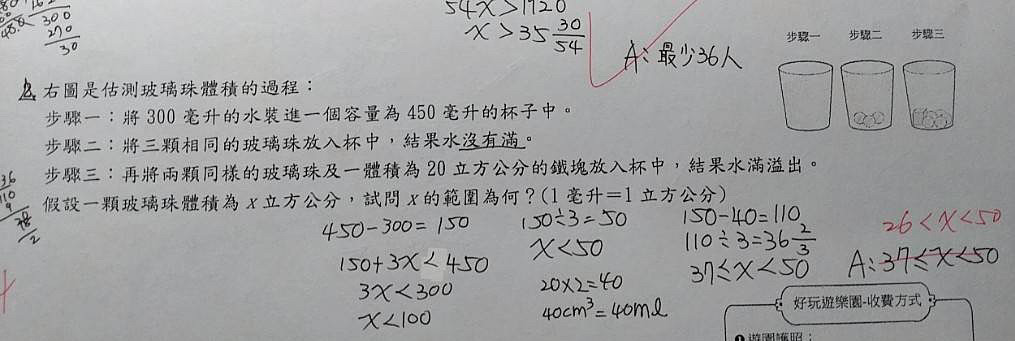 300
270
30
54x>1920
x>35 30/54
A:最少36人
步驟一 步驟二 步驟三
2. 右圖是估測玻璃珠體積的過程:
步驟一:將 300 毫升的水裝進一個容量為 450 毫升的杯子中。
步驟二:將三顆相同的玻璃珠放入杯中,結果水沒有滿。
步驟三:再將兩顆同樣的玻璃珠及一體積為 20 立方公分的鐵塊放入杯中,結果水滿溢出。
假設一顆玻璃珠體積為 x 立方公分,試問 x 的範圍為何?(1 毫升=1 立方公分)
450-300=150
150+3x<450
3x<300
x<100
150÷3=50
x<50
20×2=40
40cm³=40ml
150-40=110
110÷3=36 2/3
37≤x<50
26<x<50
A:37≤x<50
好玩遊樂園-收費方式
❶遊園護照: